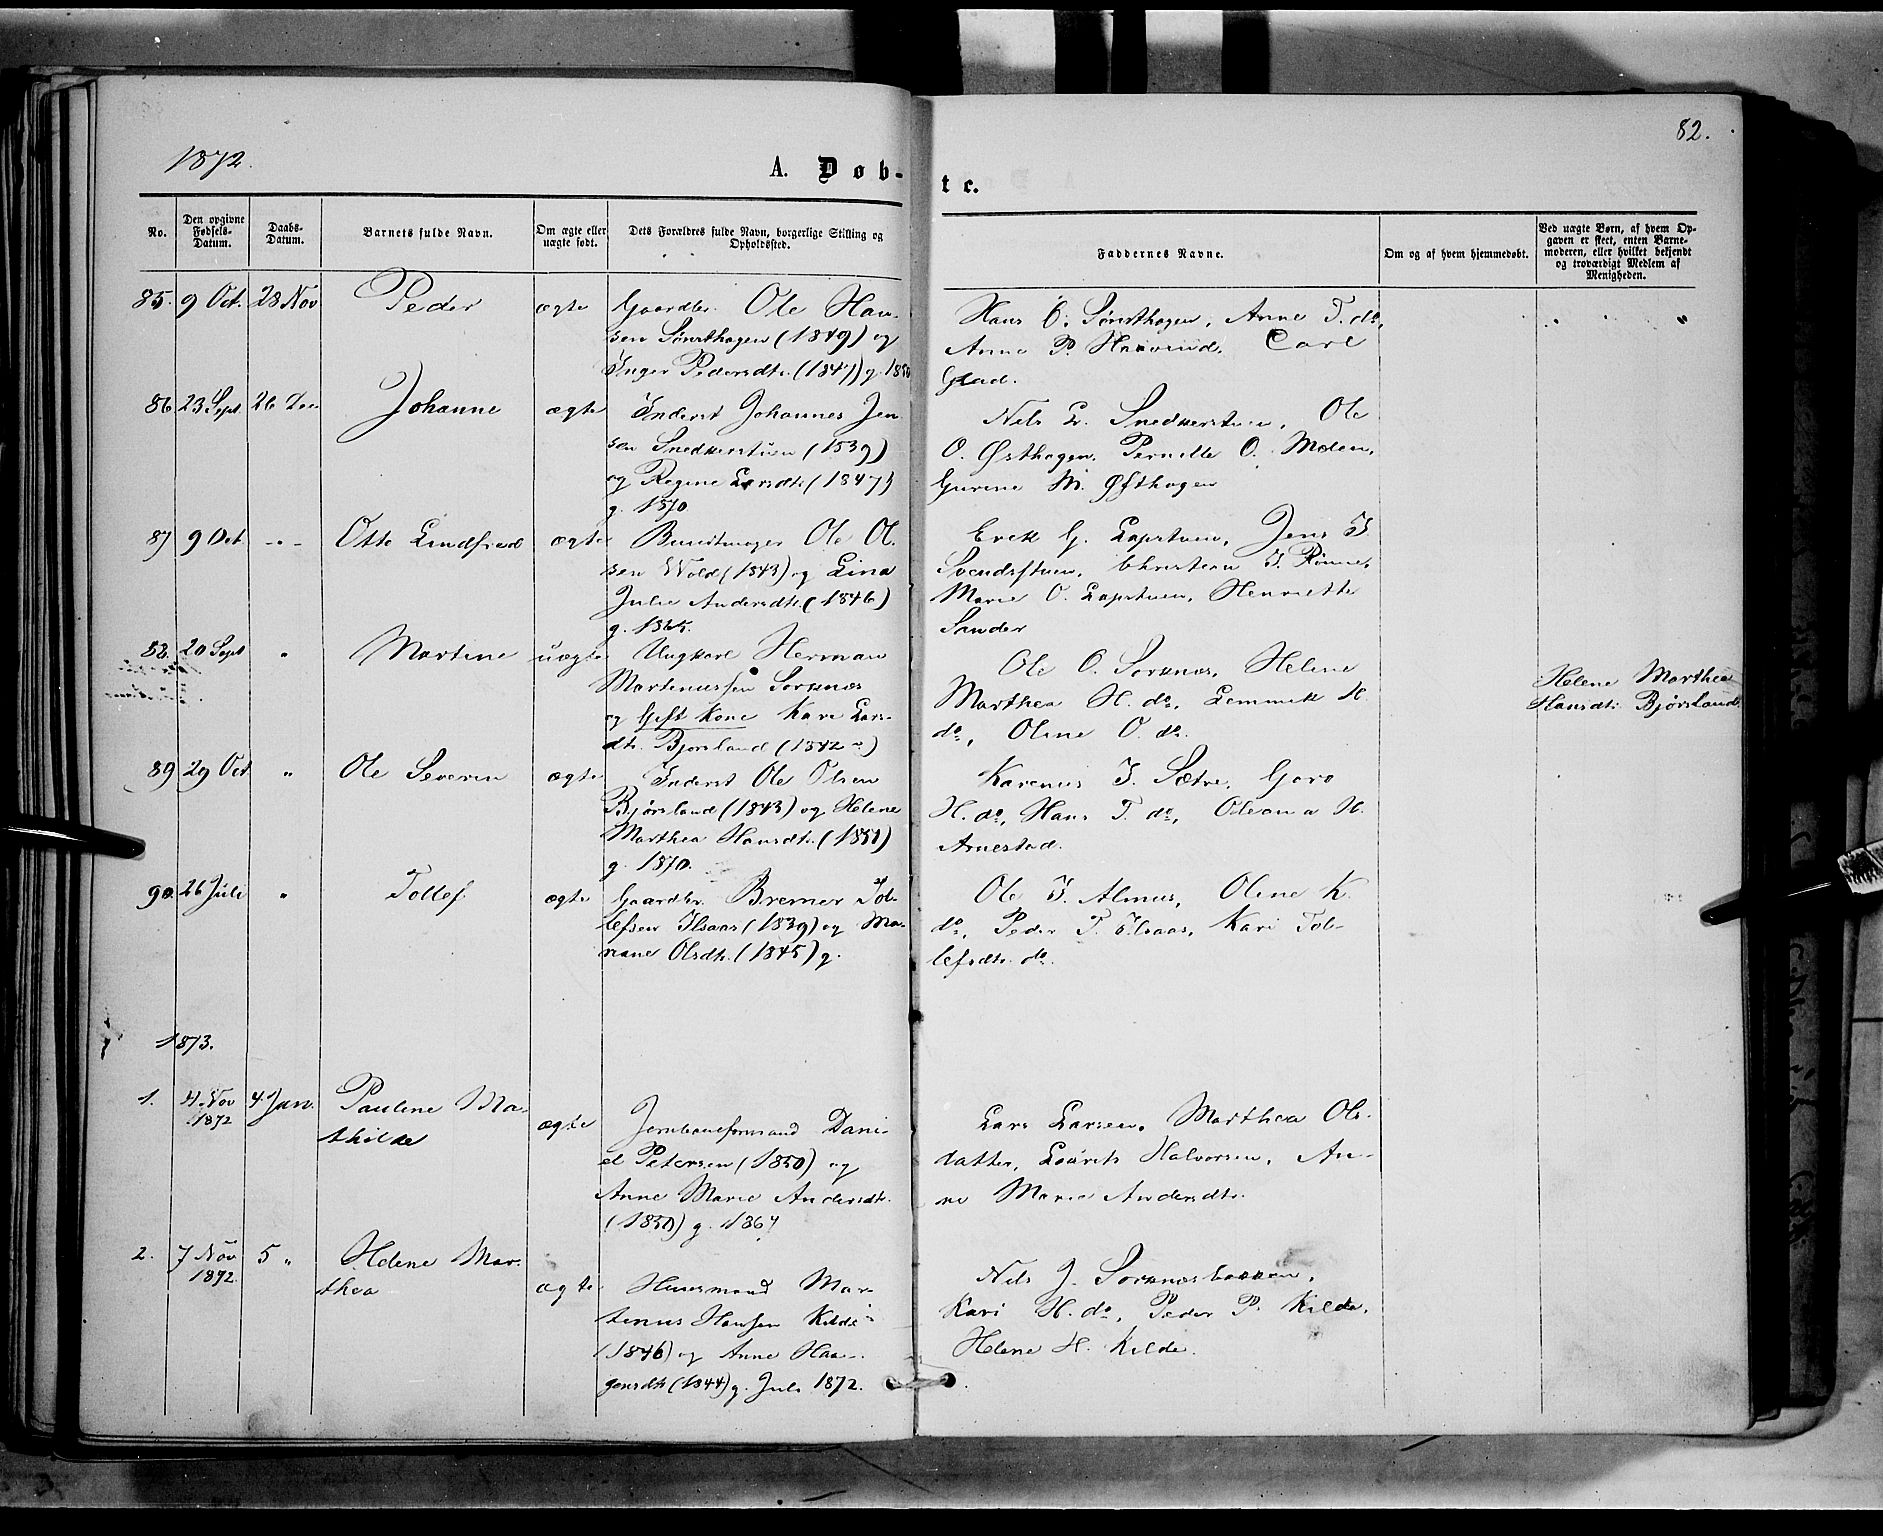 82.
1872.
A. Døb-
te.
No.
Den opgivne Fødsels-Datum.
Daabs-Datum.
Barnets fulde Navn.
Om ægte eller uægte født.
Dets Forældres fulde Navn, borgerlige Stilling og Opholdssted.
Faddernes Navne.
Om og af hvem hjemmedøbt.
Ved uægte Børn, af hvem Opgaven er skeet, enten Barnemoderen, eller hvilket bekjendt og troværdigt Medlem af Menigheden.
85. 9 Oct. 28 Nov Peder ægte Gaardbr. Ole Han-
sen Sønsthagen (1849) og
Inger Pedersdtr. (1847) g. 1850
Hans O. Sønsthagen, Anne T. do,
Anne P. Haavind, Carl
Glad.
86 23 Sept. 26 Dec Johanne ægte Inderst Johannes Jen
sen Snedkerstuen (1839)
og Regine Larsdtr (1847)
g. 1870
Nils L. Snedkerstuen, Ole
O. Østhagen, Pernille O. Moben,
Gurine M. Østhagen
87 9 Oct. -"- Otto Lindfred ægte Bundtmager Ole Ol.
sen Wold (1843) og Lina
Julie Andersdtr. (1846)
g. 1865.
Erek G. Lapstuen, Jens J
Svendsstuen, Christian J. Rønne,
Marie O. Lapstuen, Henriette
Sander
88. 20 Sept " Martine uægte Ungkarl Herman
Martinussen Sorknæs
og Gift Kone Kari Lars-
dtr. Bjørsland (1842 )
Ole O. Sorknæs, Helene
Marthea H. do, Lemmek H.
do, Oline O. do.
Helene Marthea
Hansdtr Bjørsland.
89 29 Oct " Ole Severin ægte Inderst Ole Olsen
Bjørsland (1843) og Helene
Marthea Hansdtr. (1850)
g. 1870.
Karenus J. Sætre, Goro
H. do, Hans T. do, Oleana H.
Arnestad.
90. 26 Juli " Tollef ægte Gaardbr. Bremer Tol-
lefsen Ilsaas (1839) og Ma-
riane Olsdtr. (1845) g.
Ole J. Almus, Oline K.
do, Peder T. Ilsaas, Kari Tol-
lefsdtr. do.
1873.
1. 4. Nov 1872 4. Jan. Pauline Ma-
thilde ægte Jernbaneformand Dani-
el Petersen (1850) og
Anne Marie Andersdtr.
(1850) g. 1867
Lars Larsen, Marthea Ols-
datter, Laurits Halvorsen, An-
ne Marie Andersdtr.
2. 7 Nov 1872. 5 " Helene Mar-
thea ægte Huusmand Mar-
tinus Hansen Kilde
(1846) og Anne Haa-
gensdtr (1844) g. Juli 1872.
Nils J. Sorknæsbakken,
Kari H. do, Peder P. Kilde,
Helene H. Kilde.